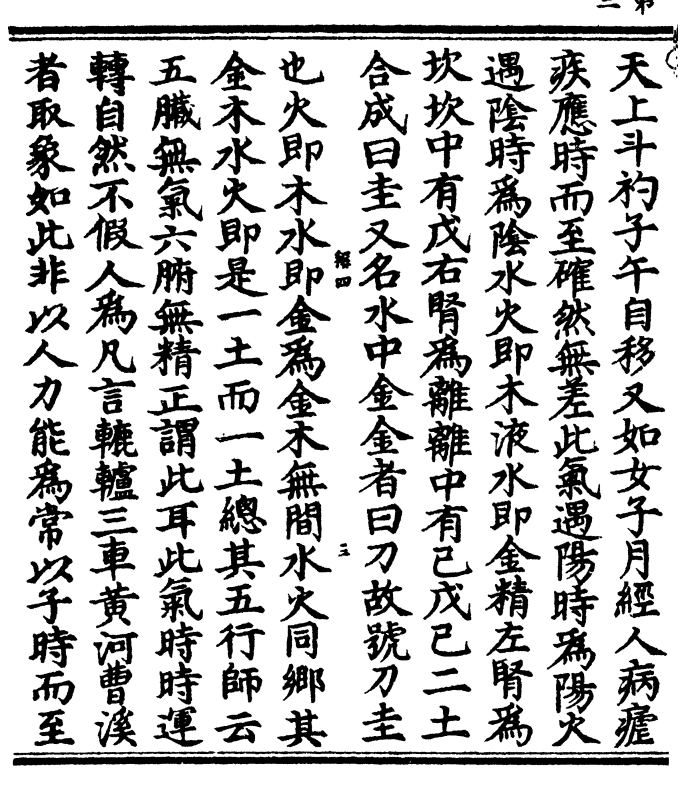 天上斗杓子午自移又如女子月經人病瘧
疾應時而至確然無差此氣遇陽時爲陽火
遇陰時爲陰水火即木液水即金精左腎爲
坎坎中有戊右腎爲離離中有己戊己二土
合成曰圭又名水中金金者曰刀故號刀圭
也火即木水即金爲金木無間水火同鄉其
金木水火即是一土而一土總其五行師云
五臟無氣六腑無精正謂此耳此氣時時運
轉自然不假人爲凡言轆轤三車黃河曹溪
者取象如此非以人力能爲常以子時而至